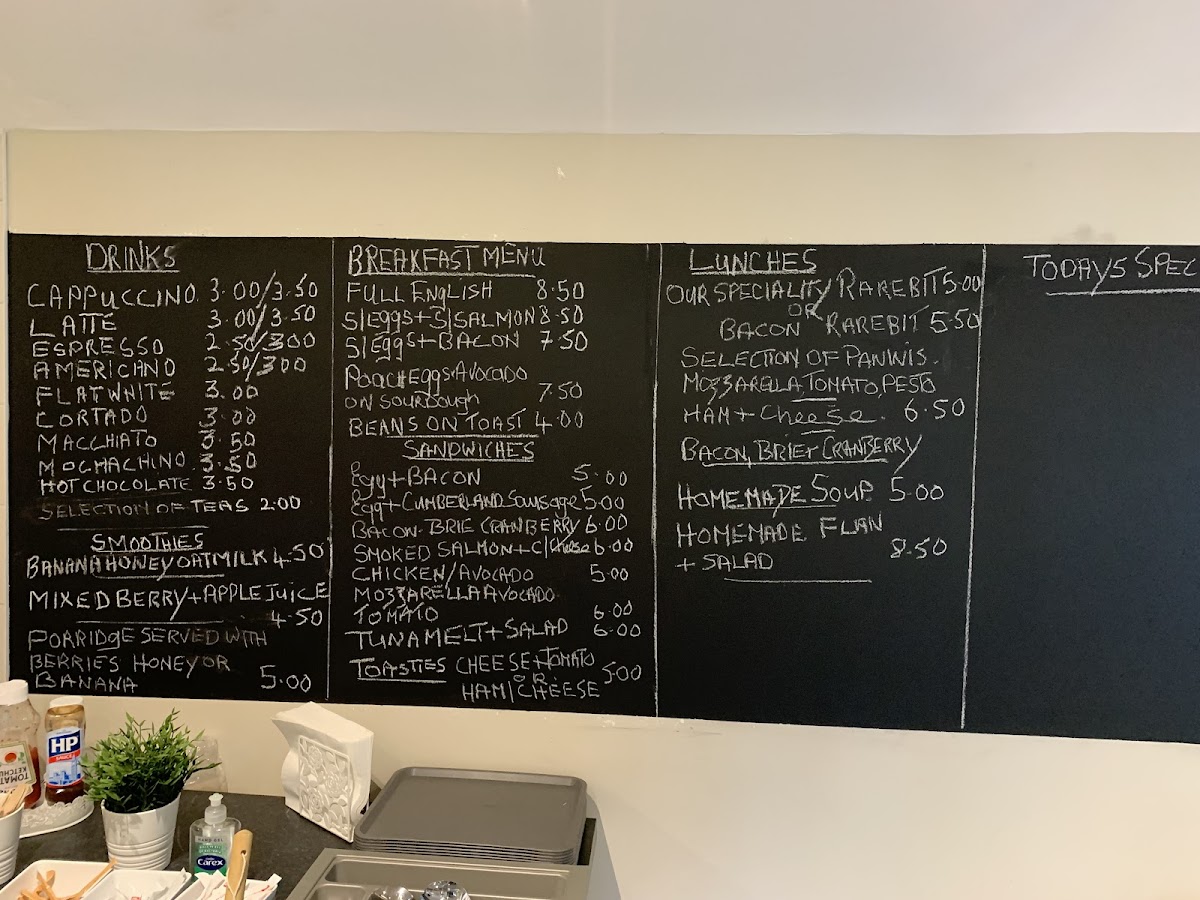 DRINKS
CAPPUCCINO. 3.00/3.50
LATTE 3.00/3.50
ESPRESSO 2.50/3.00
AMERICANO 2.50/3.00
FLATWHITE 3.00
CORTADO 3.00
MACCHIATO 3.50
MOCHACHINO. 3.50
HOT CHOCOLATE 3.50
SELECTION OF TEAS 2.00
SMOOTHIES
BANANA HONEY OATMILK 4.50
MIXED BERRY + APPLE JUICE
4.50
PORRIDGE SERVED WITH
BERRIES HONEY OR
BANANA 5.00
BREAKFAST MENU
FULL ENGLISH 8.50
S/EGGS + S/SALMON 8.50
S/EGGS + BACON 7.50
POACH EGGS. AVOCADO
ON SOURDOUGH 7.50
BEANS ON TOAST 4.00
SANDWICHES
Egg + BACON 5.00
Egg + CUMBERLAND SAUSAGE 5.00
BACON. BRIE CRANBERRY 6.00
SMOKED SALMON + C/cheese 6.00
CHICKEN/AVOCADO 5.00
MOZZARELLA AVOCADO
TOMATO 6.00
TUNA MELT + SALAD 6.00
TOASTIES CHEESE + TOMATO
OR 5.00
HAM/CHEESE
LUNCHES
OUR SPECIALITY RAREBIT 5.00
OR
BACON RAREBIT 5.50
SELECTION OF PANINIS.
MOZZARELLA TOMATO, PESTO
HAM + Cheese. 6.50
BACON, BRIE + CRANBERRY
HOMEMADE SOUP 5.00
HOMEMADE FLAN
+ SALAD 8.50
TODAYS SPEC
TOMATO
KETCHUP
HP
Carex